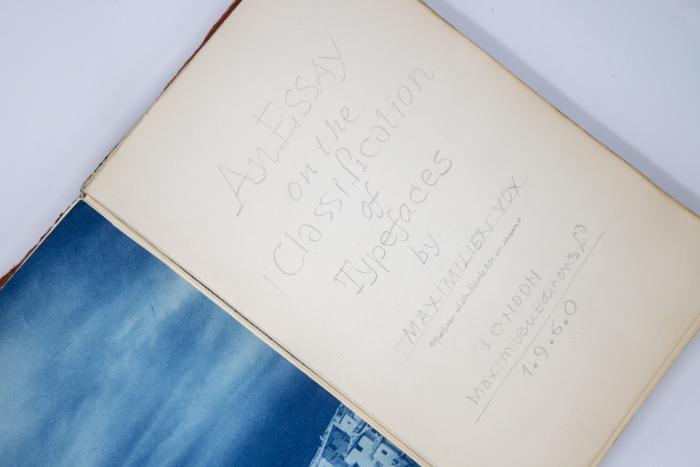 An ESSAY
on the
Classification
of
Typefaces
by
MAXIMILIEN VOX
LONDON
1.9.6.0